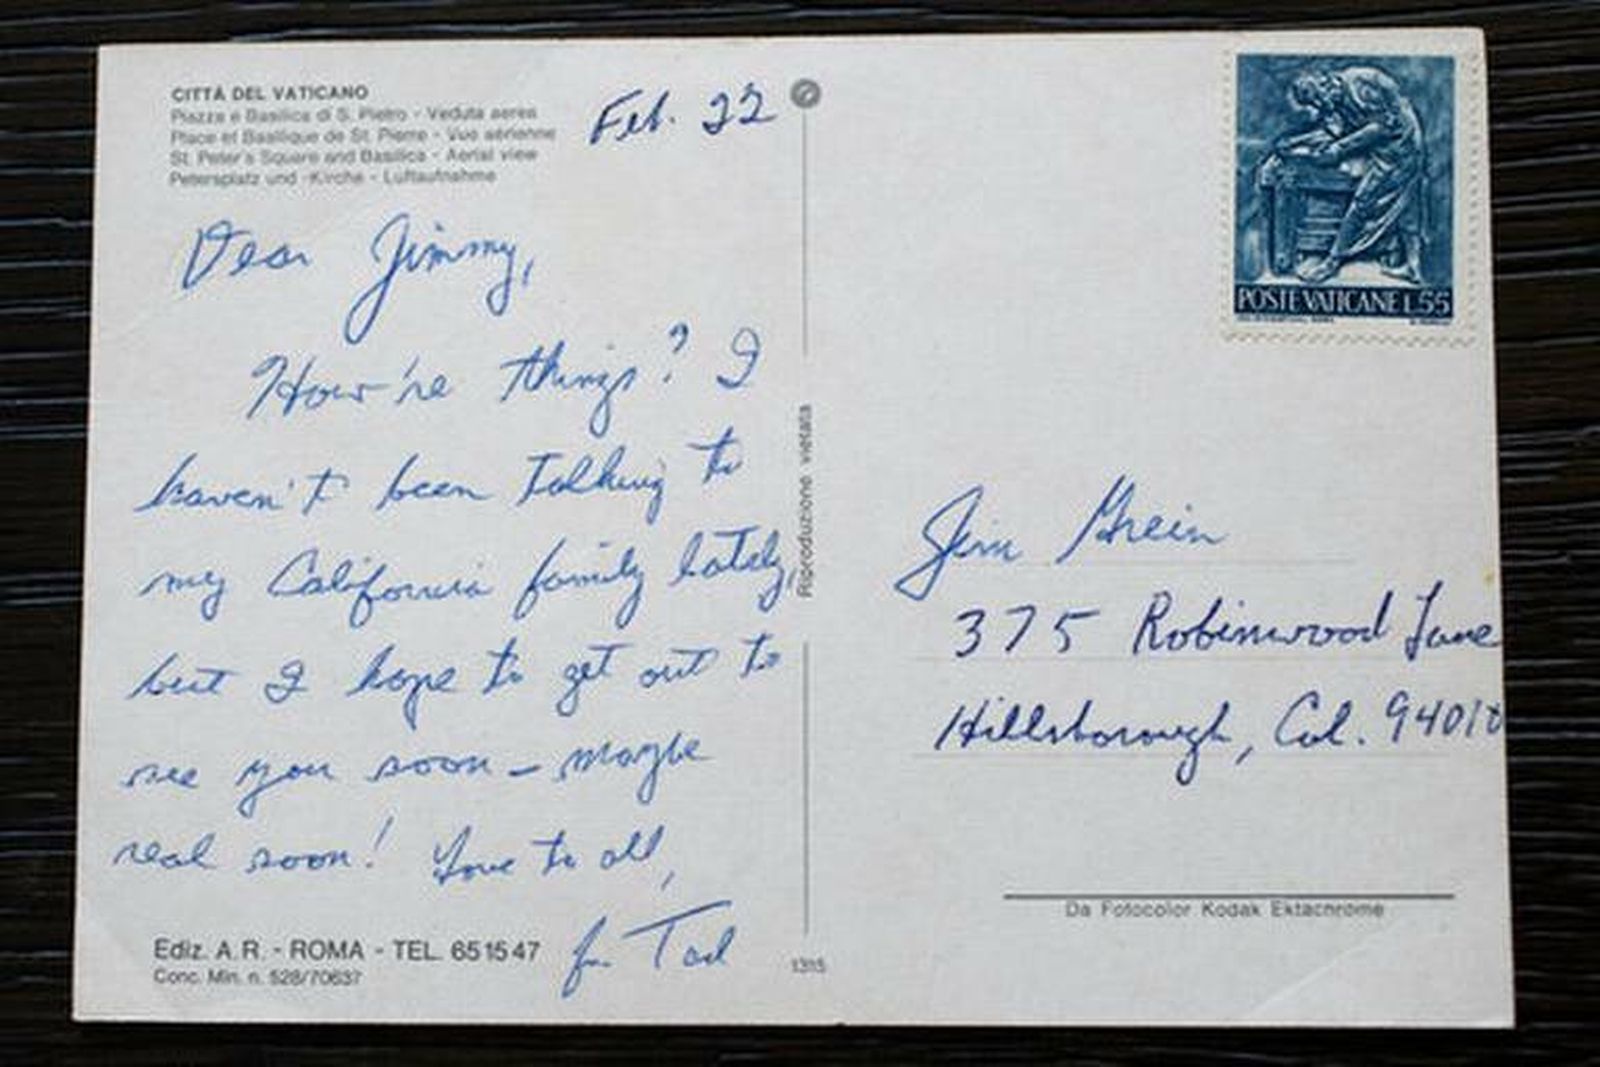 CITTÀ DEL VATICANO
Piazza e Basilica di S. Pietro - Veduta aerea
Place et Basilique de St. Pierre - Vue aérienne
St. Peter's Square and Basilica - Aerial view
Petersplatz und -Kirche - Luftaufnahme
Feb. 22
Dear Jimmy,
How're things? I
haven't been talking to
my California family lately,
but I hope to get out to
see you soon – maybe
real soon! Love to all,
fr. Tad
Ediz. A.R. - ROMA - TEL. 651547
Conc. Min. n. 528/70637
Riproduzione vietata
1315
POSTE VATICANE L.55
Jim Grein
375 Robinwood Lane
Hillsborough, Cal. 94010
Da Fotocolor Kodak Ektachrome